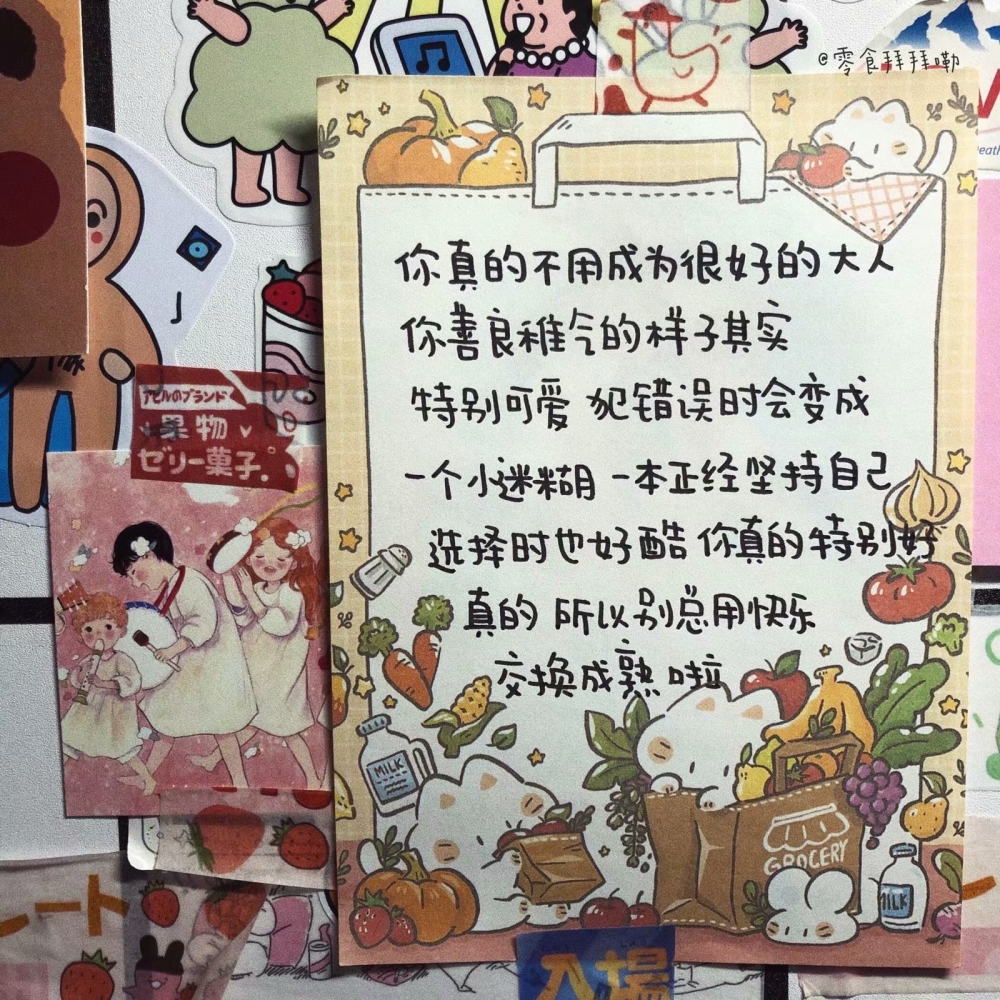 @零食拜拜嘞
你真的不用成为很好的大人
你善良稚气的样子其实
特别可爱 犯错误时会变成
一个小迷糊 一本正经坚持自己
选择时也好酷 你真的特别好
真的 所以别总用快乐
交换成熟 啦
アヒルのブランド
果物
ゼリー菓子。
MILK
GROCERY
MILK
ート
入場